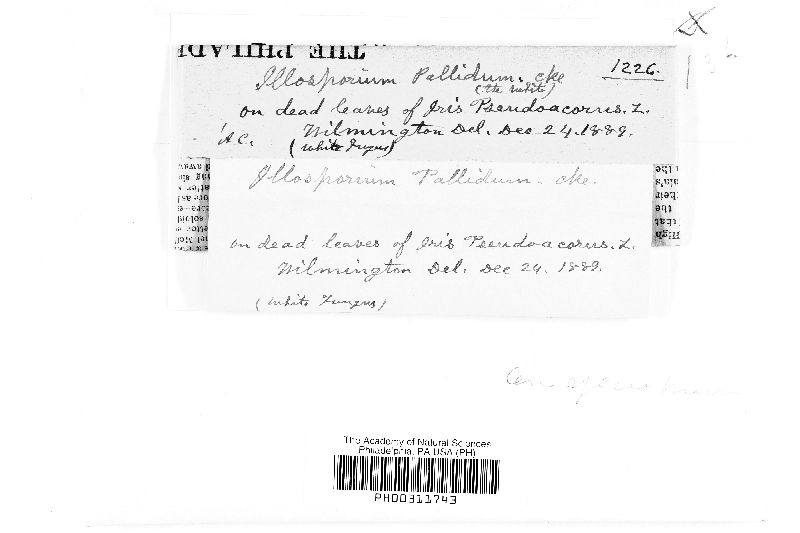 THE PHILAD
Illosporium Pallidum. cke
(the white)
1226.
on dead leaves of Iris Pseudoacorus. L.
A C. Wilmington Del. Dec 24. 1889.
(white Fungus)
Illosporium Pallidum. cke.
on dead leaves of Iris Pseudoacorus. L.
Wilmington Del. Dec 24. 1889.
(white Fungus)
The Academy of Natural Sciences
Philadelphia, PA USA (PH)
PH00311743